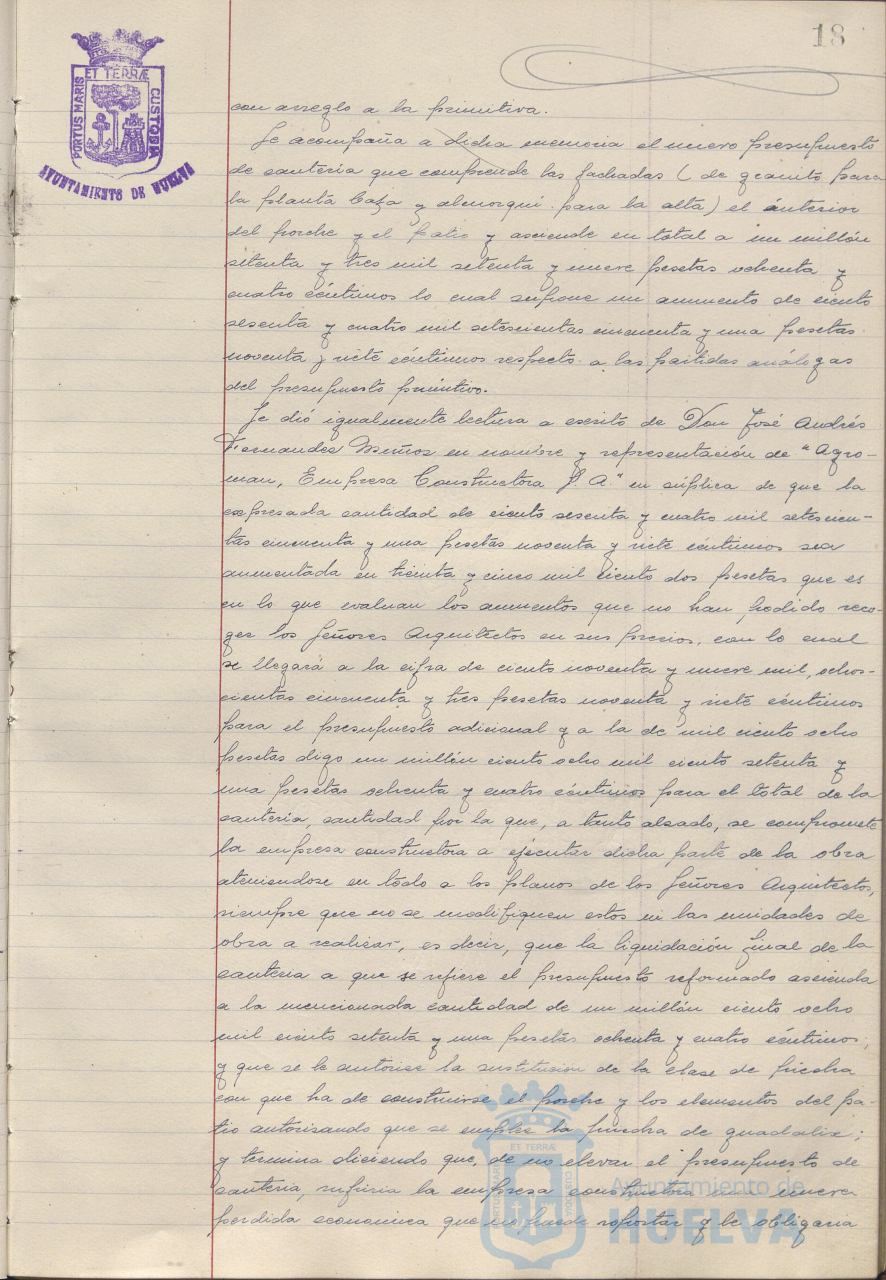 18
ET TERRÆ
PORTUS MARIS
CUSTODIA
AYUNTAMIENTO DE HUELVA
con arreglo a la primitiva.
Se acompaña a dicha memoria el nuevo presupuesto
de cantería que comprende las fachadas (de granito para
la planta baja y almorquí para la alta) el interior
del porche y el patio y asciende en total a un millón
setenta y tres mil setenta y nueve pesetas ochenta y
cuatro céntimos lo cual supone un aumento de ciento
sesenta y cuatro mil setescientas cincuenta y una pesetas
noventa y siete céntimos respecto a las partidas análogas
del presupuesto primitivo.
Se dió igualmente lectura a escrito de Don José Andrés
Fernandes en nombre y representación de "Agro-
man, Empresa Constructora S. A." en súplica de que la
expresada cantidad de ciento sesenta y cuatro mil setescien-
tas cincuenta y una pesetas noventa y siete céntimos sea
aumentada en treinta y cinco mil ciento dos pesetas que es
en lo que evaluan los aumentos que no han podido reco-
ger los Señores Arquitectos en sus precios, con lo cual
se llegará a la cifra de ciento noventa y nueve mil, ochos-
cientas cincuenta y tres pesetas noventa y siete céntimos
para el presupuesto adicional y a la de mil ciento ocho
pesetas digo un millón ciento ocho mil ciento setenta y
una pesetas ochenta y cuatro céntimos para el total de la
cantería, cantidad por la que, a tanto alsado, se compromete
la empresa constructora a ejecutar dicha parte de la obra
ateniendose en todo a los planos de los Señores Arquitectos,
siempre que no se modifiquen estos ni las unidades de
obra a realizar, es decir, que la liquidación final de la
cantería a que se refiere el presupuesto reformado ascienda
a la mencionada cantidad de un millón ciento ocho
mil ciento setenta y una pesetas ochenta y cuatro céntimos,
y que se le autorise la sustitución de la clase de piedra
con que ha de construirse el porche y los elementos del pa-
tio autorisando que se emplee la piedra de guadalix;
y termina diciendo que, de no elevar el presupuesto de
cantería, sufriria la empresa constructora una nueva
perdida economica que no puede soportar y le obligaria
ET TERRÆ
PORTUS MARIS
CUSTODIA
Ayuntamiento de
HUELVA